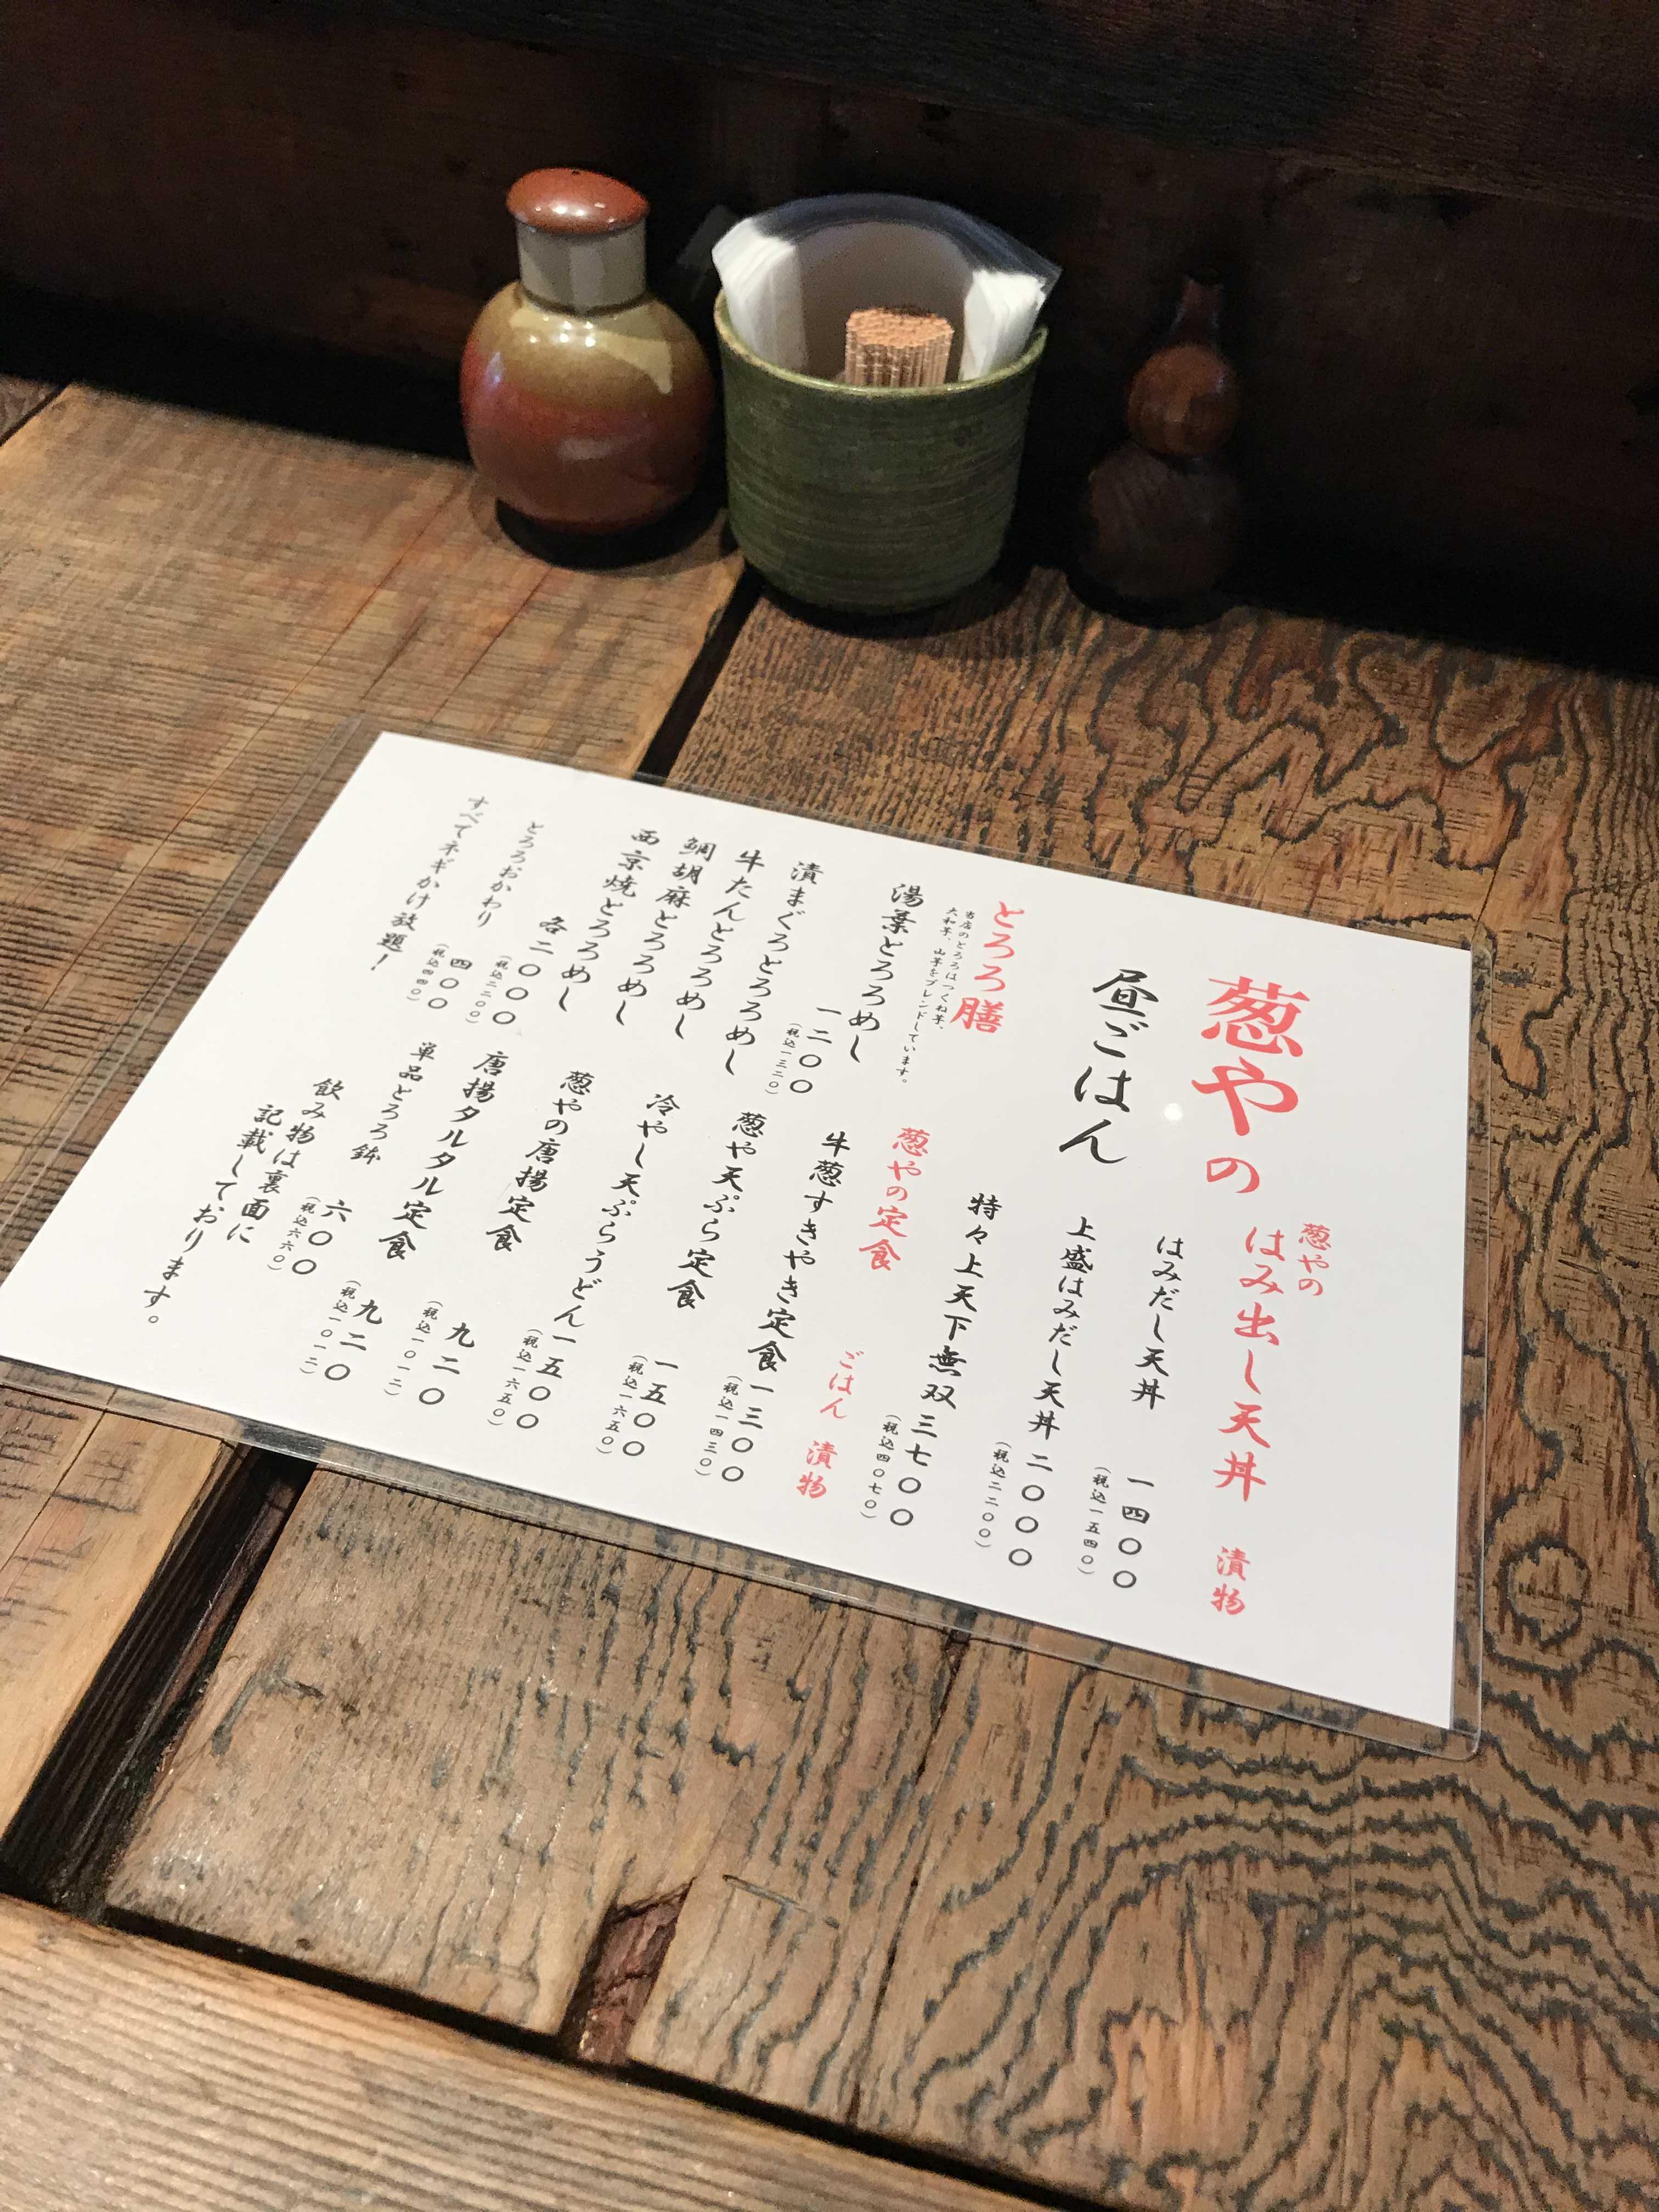 葱やの
昼ごはん
葱やの
はみ出し天丼 漬物
はみだし天丼 一四〇〇
(税込一五四〇)
上盛はみだし天丼 二〇〇〇
(税込二二〇〇)
特々上天下無双 三七〇〇
(税込四〇七〇)
とろろ膳
当店のとろろはつくね芋、
大和芋、山芋をブレンドしています。
湯葉とろろめし
一二〇〇
(税込一三二〇)
漬まぐろとろろめし
牛たんとろろめし
鯛胡麻とろろめし
西京焼とろろめし
各二〇〇〇
(税込二二〇〇)
とろろおかわり 四〇〇
(税込四四〇)
すべてネギかけ放題!
葱やの定食 ごはん 漬物
牛葱すきやき定食 一三〇〇
(税込一四三〇)
葱や天ぷら定食 一五〇〇
(税込一六五〇)
冷やし天ぷらうどん 一五〇〇
(税込一六五〇)
葱やの唐揚定食 九二〇
(税込一〇一二)
唐揚タルタル定食 九二〇
(税込一〇一二)
単品とろろ鉢 六〇〇
(税込六六〇)
飲み物は裏面に
記載しております。